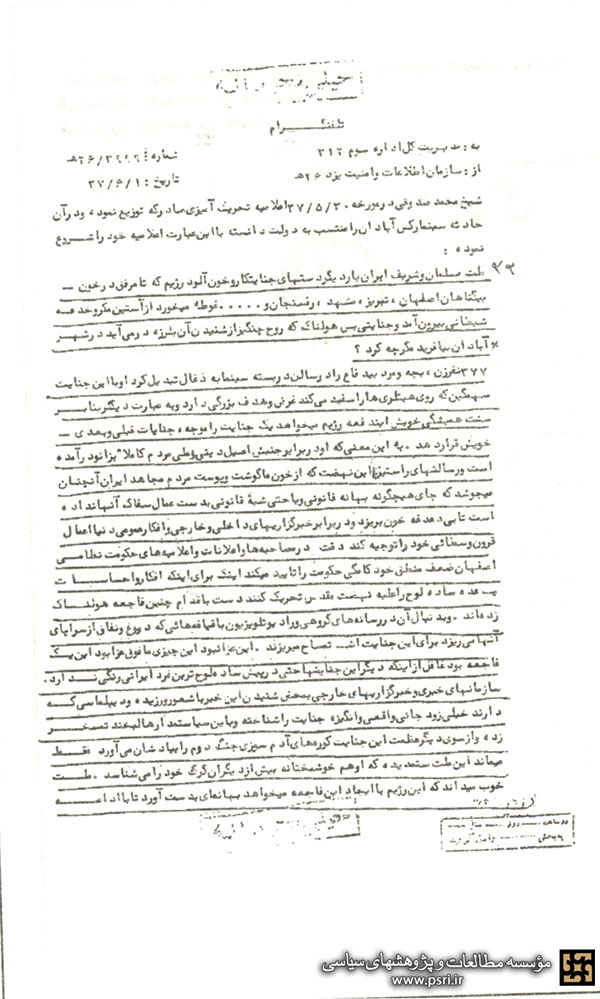 خیلی محرمانه
تلفنگرام
به : مدیریت کل اداره سوم ۳۱۲
شماره : ۲۶/۳۹۹۹ ه‍
از : سازمان اطلاعات و امنیت یزد ۲۶ ه‍
تاریخ : ۳۷/۶/۱
شیخ محمد صدوقی در مورخه ۳۷/۵/۳۰ اعلامیه تحریک آمیزی صادر که توزیع نموده و در آن
حادثه سینما رکس آبادان را منتسب به دولت دانسته با این عبارت اعلامیه خود را شروع
نموده :
ملت مسلمان و شریف ایران بار دیگر دستهای جنایتکار و خون آلود رژیم که تا مرفق در خون –
بیگناهان اصفهان ، تبریز ، مشهد ، رفسنجان و ..... غوطه میخورد از آستین مکر و خدعه
شیطانی بیرون آمد و جنایتی بس هولناک که روح چنگیز از شنیدن آن بلرزه در می‌آید در شهر
آبادان بیافرید مگر چه کرد ؟
۳۷۷ نفر زن ، بچه و مرد بیدفاع را در سالن در بسته سینما به ذغال تبدیل کرد او با این جنایت
سهمگین که روی هیتلری ها را سفید می‌کند غرض و هدف بزرگی دارد و به عبارت دیگر بنا بر
سنت همیشگی خویش ایندفعه رژیم میخواهد یک جنایت را موجه ، جنایات قبلی و بعدی –
خویش قرار دهد . به این معنی که او در برابر جنبش اصیل دینی و ملی مردم کاملا" بزانو درآمده
است و رسالتهای راستین این نهضت که از خون ما گوشت و پوست مردم مجاهد ایران آنچنان
میجوشد که جای هیچگونه بهانه قانونی و یا حتی شبه قانونی بدست عمال سفاک آنها نداده
است تا بی دغدغه خون بریزد و در برابر خبرگزاریهای داخلی و خارجی و افکار عمومی دنیا اعمال
قرون وسطائی خود را توجیه کند دقت در مصاحبه‌ها و اعلانات و اعلامیه های حکومت نظامی
اصفهان ضعف منطق خودکامگی حکومت را تایید میکند اینک برای اینکه افکار و احساسات
عده ساده لوح را علیه نهضت مقدس تحریک کنند دست باقدام چنین فاجعه هولناک
زده‌اند . و بدنبال آن در رسانه های گروهی و رادیو تلویزیون با قیافه هائی که دروغ و نفاق از سراپای
آنها می‌ریزد برای این جنایت اشک تمساح میریزند . این عزا نبود این چیزی مافوق عزا بود این یک
فاجعه بود غافل از اینکه دیگر این جنایتها حتی در پیش ساده لوح ترین فرد ایرانی رنگی ندارد.
سازمانهای خبری و خبرگزاریهای خارجی بمحض شنیدن این خبر با شعور ورزیده و دیپلماسی که
دارند خیلی زود جانی واقعی و انگیزه جنایت را شناخته و باین سیاستمدارها لبخند تمسخر
زده و از سوی دیگر عظمت این جنایت کوره های آدم سوزی جنگ دوم را بیادشان می‌آورد فقط
میماند این ملت ستمدیده که او هم خوشبختانه بیش از دیگران گرگ خود را می‌شناسد . ملت
خوب میداند که این رژیم با ایجاد این فاجعه میخواهد بهانه‌ای بدست آورد تا با ادامه
خیلی محرمانه
در ساعت روز
به بخش واصل گردید
مؤسسه مطالعات و پژوهشهای سیاسی
www.psri.ir